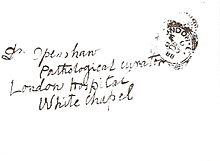 Dr Openshaw
Pathological curator
London Hospital
White chapel